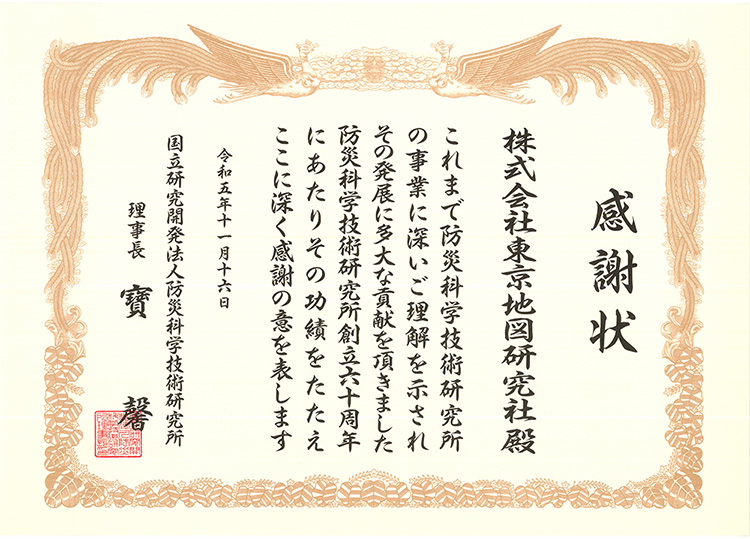 感謝状
株式会社東京地図研究社殿
これまで防災科学技術研究所
の事業に深いご理解を示され
その発展に多大な貢献を頂きました
防災科学技術研究所創立六十周年
にあたりその功績をたたえ
ここに深く感謝の意を表します
令和五年十一月十六日
国立研究開発法人防災科学技術研究所
理事長 寶 馨